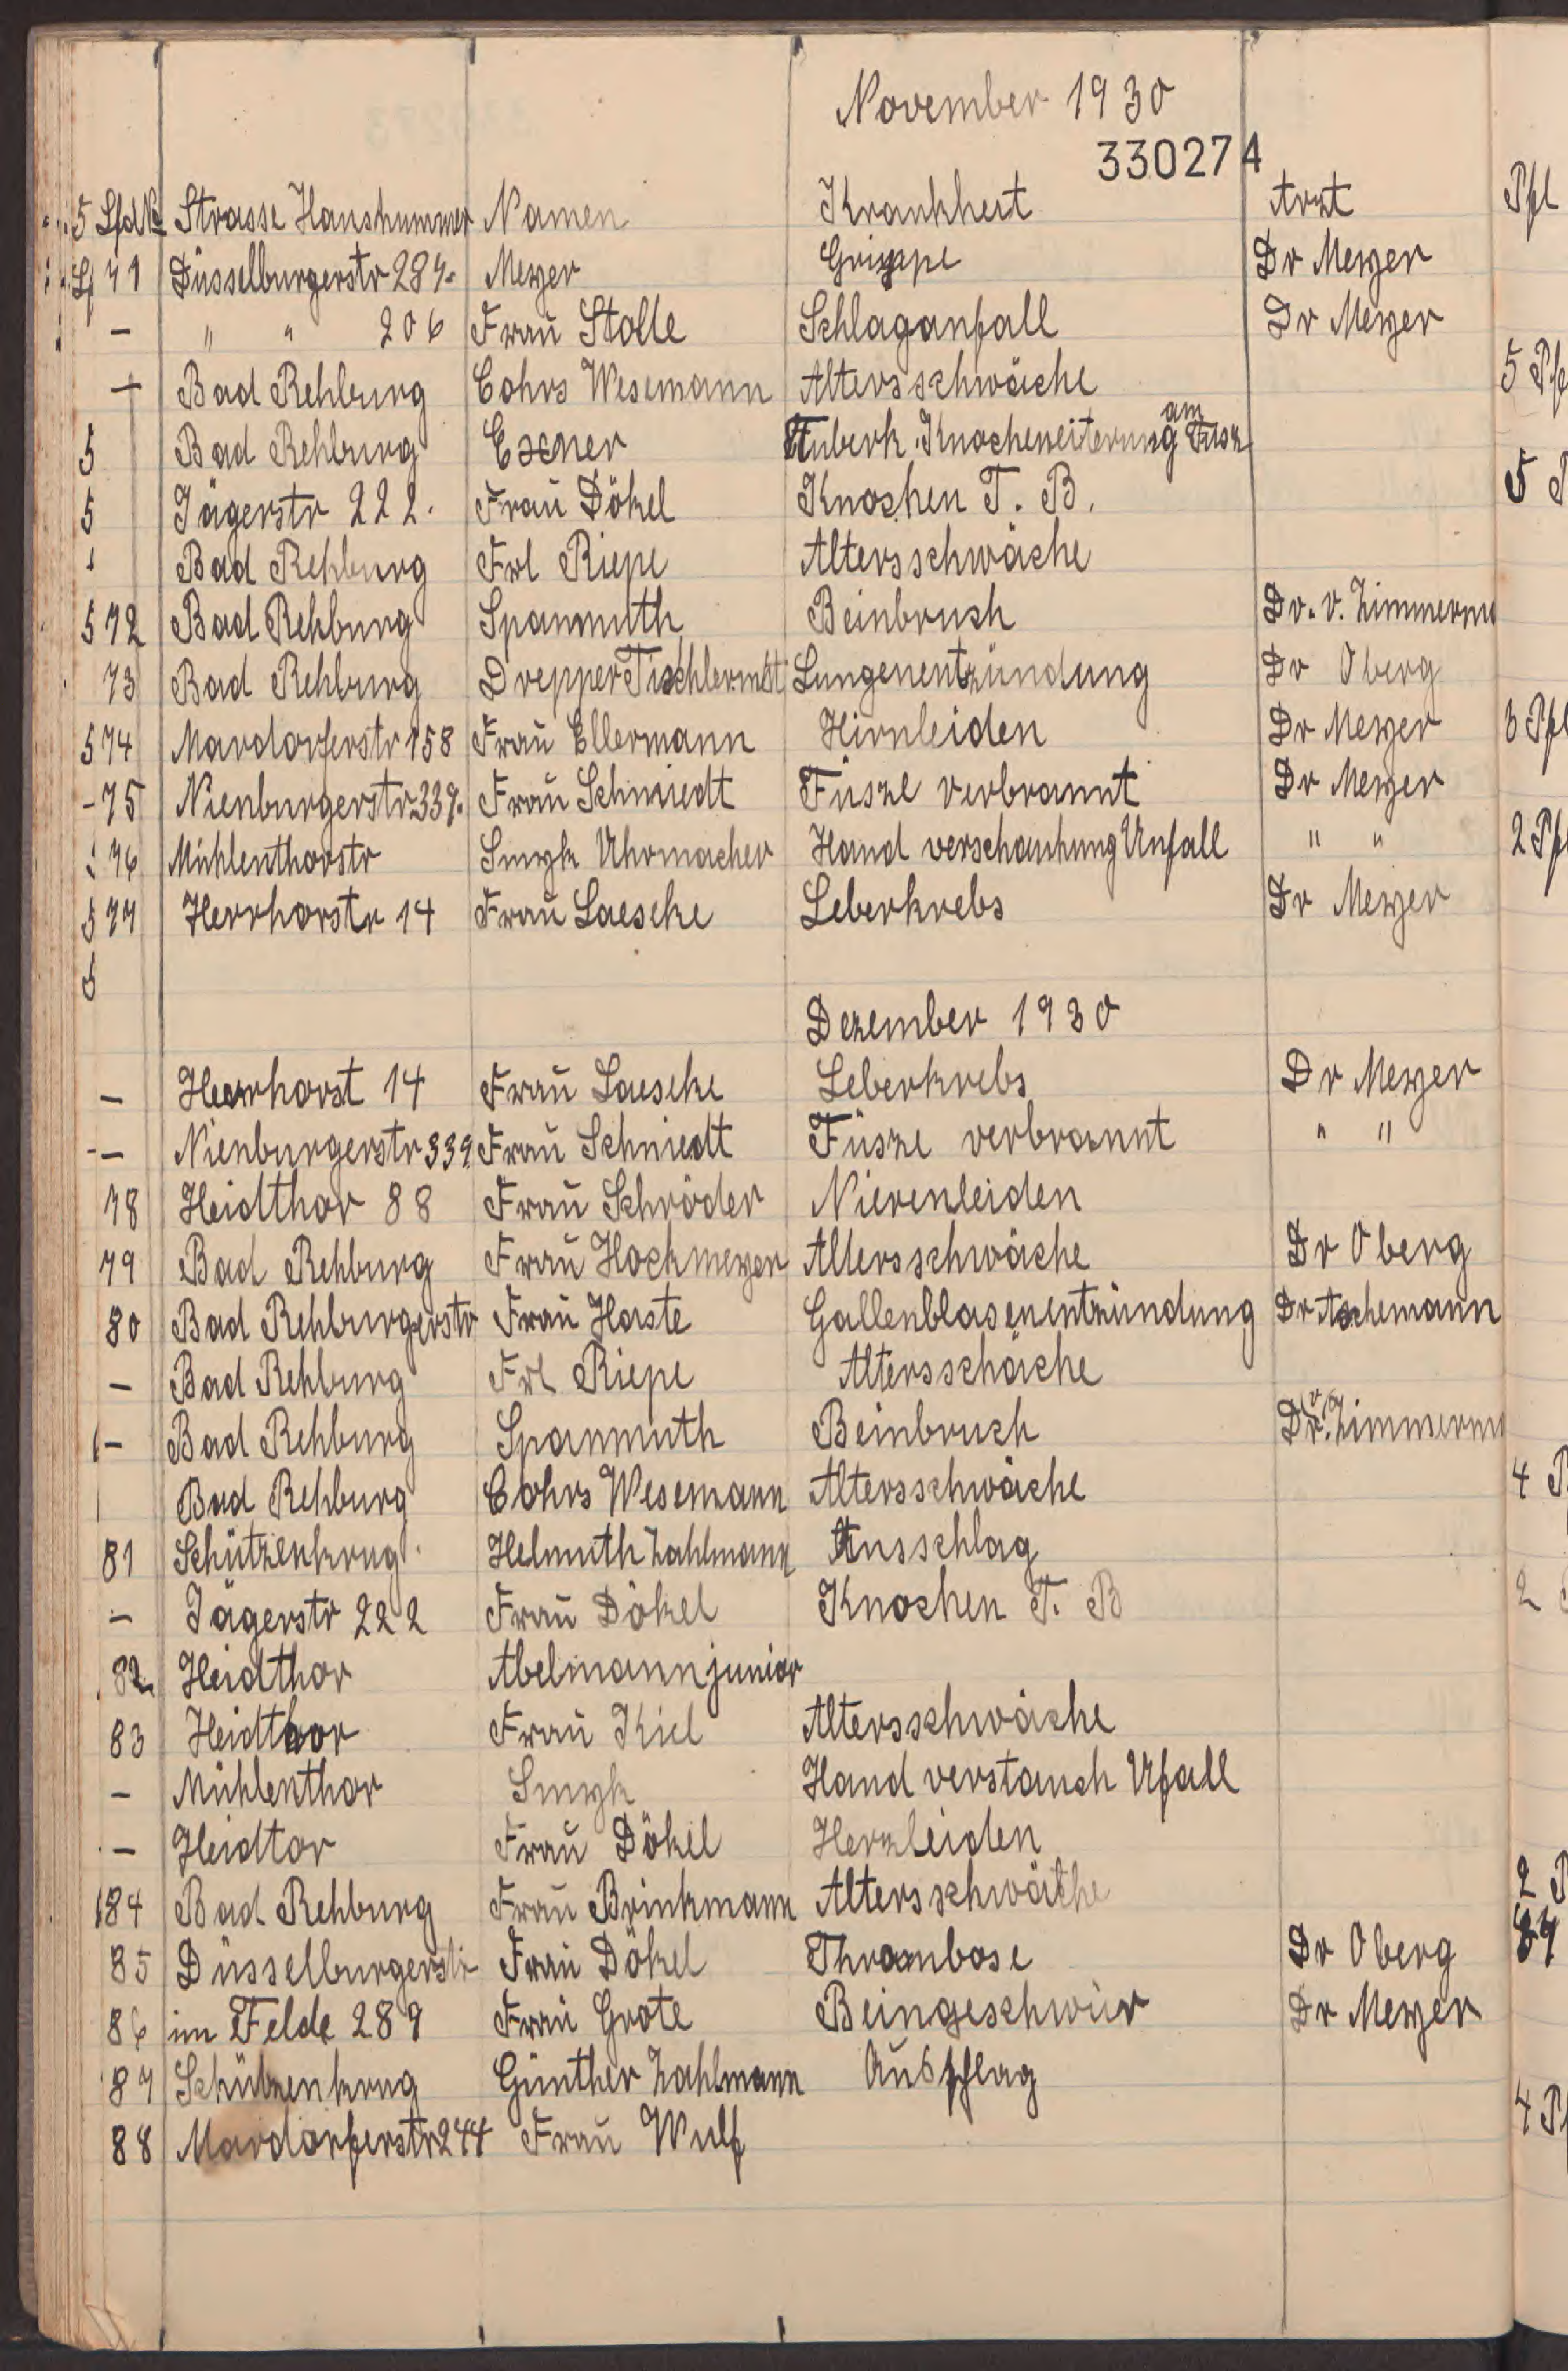 November 1930
330274
Lfd № Strasse Hausnummer Namen Krankheit Arzt
71 Düsselburgerstr 287. Meyer Grippe Dr Meyer
– " " 206 Frau Stolle Schlaganfall Dr Meyer
– Bad Rehburg Cohrs Wesemann Altersschwäche
Bad Rehburg Exner Tuberk. Knocheneiterung am Fusz
Jägerstr 222. Frau Dökel Knochen T. B.
Bad Rehburg Frl Riepe Altersschwäche
72 Bad Rehburg Spanmuth Beinbruch Dr. v. Zimmerm
73 Bad Rehburg Drepper Tischlermst Lungenentzündung Dr Oberg
74 Mardorferstr 158 Frau Ellermann Hirnleiden Dr Meyer
75 Nienburgerstr 339. Frau Schmiedt Füsze verbrannt Dr Meyer
76 Mühlenthorstr Smyk Uhrmacher Hand verschauhung Unfall " "
77 Herrhorstr 14 Frau Laeseke Leberkrebs Dr Meyer
Dezember 1930
– Herrhorst 14 Frau Laeseke Leberkrebs Dr Meyer
– Nienburgerstr 339 Frau Schmiedt Füsze verbrannt " "
78 Heidthor 88 Frau Schröder Nierenleiden
79 Bad Rehburg Frau Hockmeyer Altersschwäche Dr Oberg
80 Bad Rehburgerstr Frau Haste Gallenblasenentzündung Dr Aschemann
– Bad Rehburg Frl Riepe Altersschäche
– Bad Rehburg Spanmuth Beinbruch Dr. v. Zimmerm
Bad Rehburg Cohrs Wesemann Altersschwäche
81 Schützenkrug Helmuth Zahlmann Ausschlag
– Jägerstr 222 Frau Dökel Knochen T. B
82 Heidthor Abelmann junior
83 Heidthor Frau Kiel Altersschwäche
– Mühlenthor Smyk Hand verstauch Ufall
– Heidtor Frau Dökel Herzleiden
84 Bad Rehburg Frau Brinkmann Altersschwäche
85 Düsselburgerstr Frau Dökel Thrombose Dr Oberg
86 im Felde 289 Frau Grote Beingeschwür Dr Meyer
87 Schützenkrug Günther Zahlmann Ausschlag
88 Mardorferstr 244 Frau Wulf